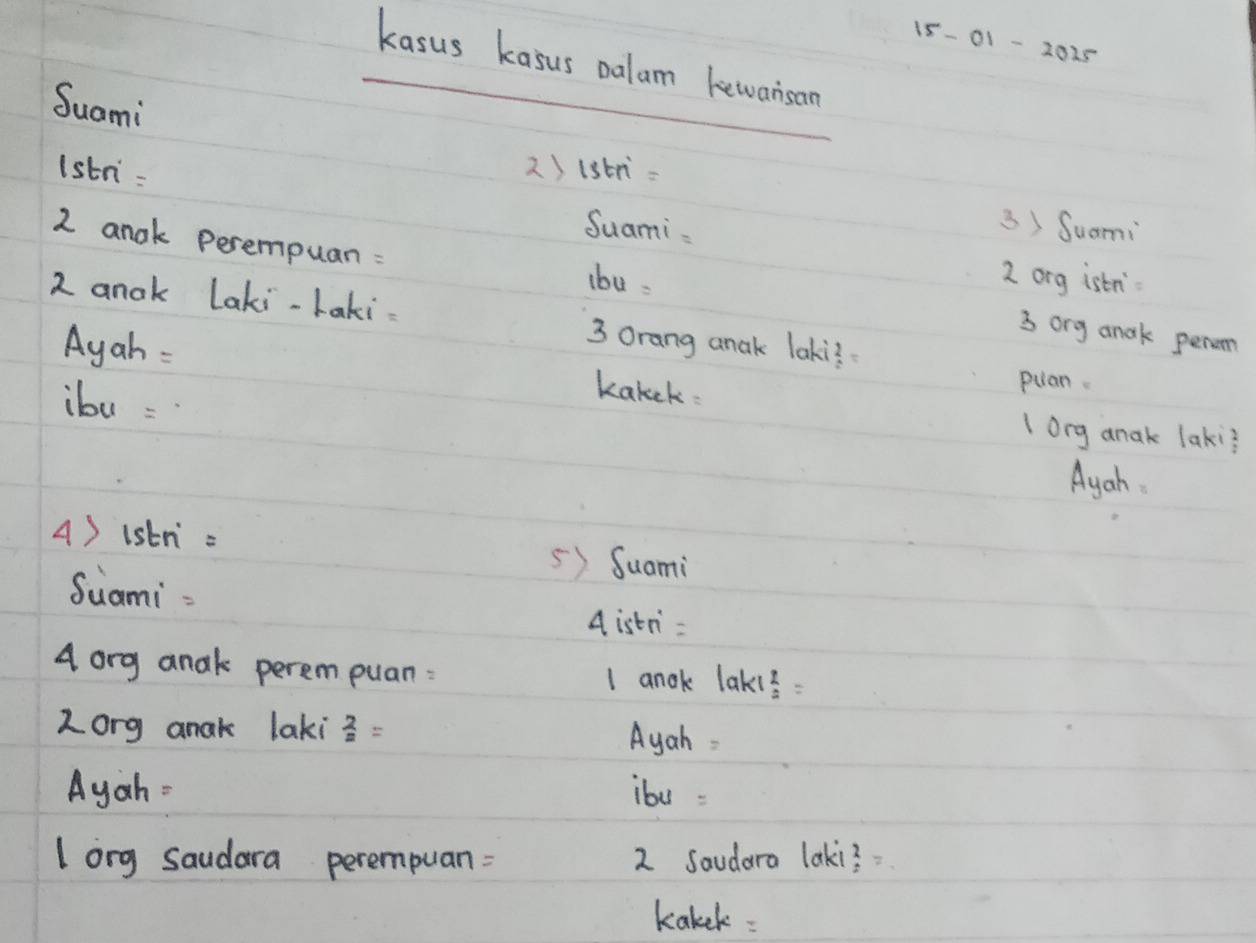 15 - 01 - 2025
kasus kasus Dalam kewarisan
Suami
Istri =
2 anak Perempuan =
2 anak Laki - Laki =
Ayah =
ibu =
2) Istri =
Suami =
ibu =
3 Orang anak laki² =
kakek =
3) Suami
2 org istri =
3 org anak perem
puan =
1 Org anak laki²
Ayah =
4) Istri =
Suami =
4 org anak perempuan =
2 org anak laki² =
Ayah =
1 org saudara perempuan =
5) Suami
4 istri =
1 anak laki² =
Ayah =
ibu =
2 Saudara laki² =
kakek =